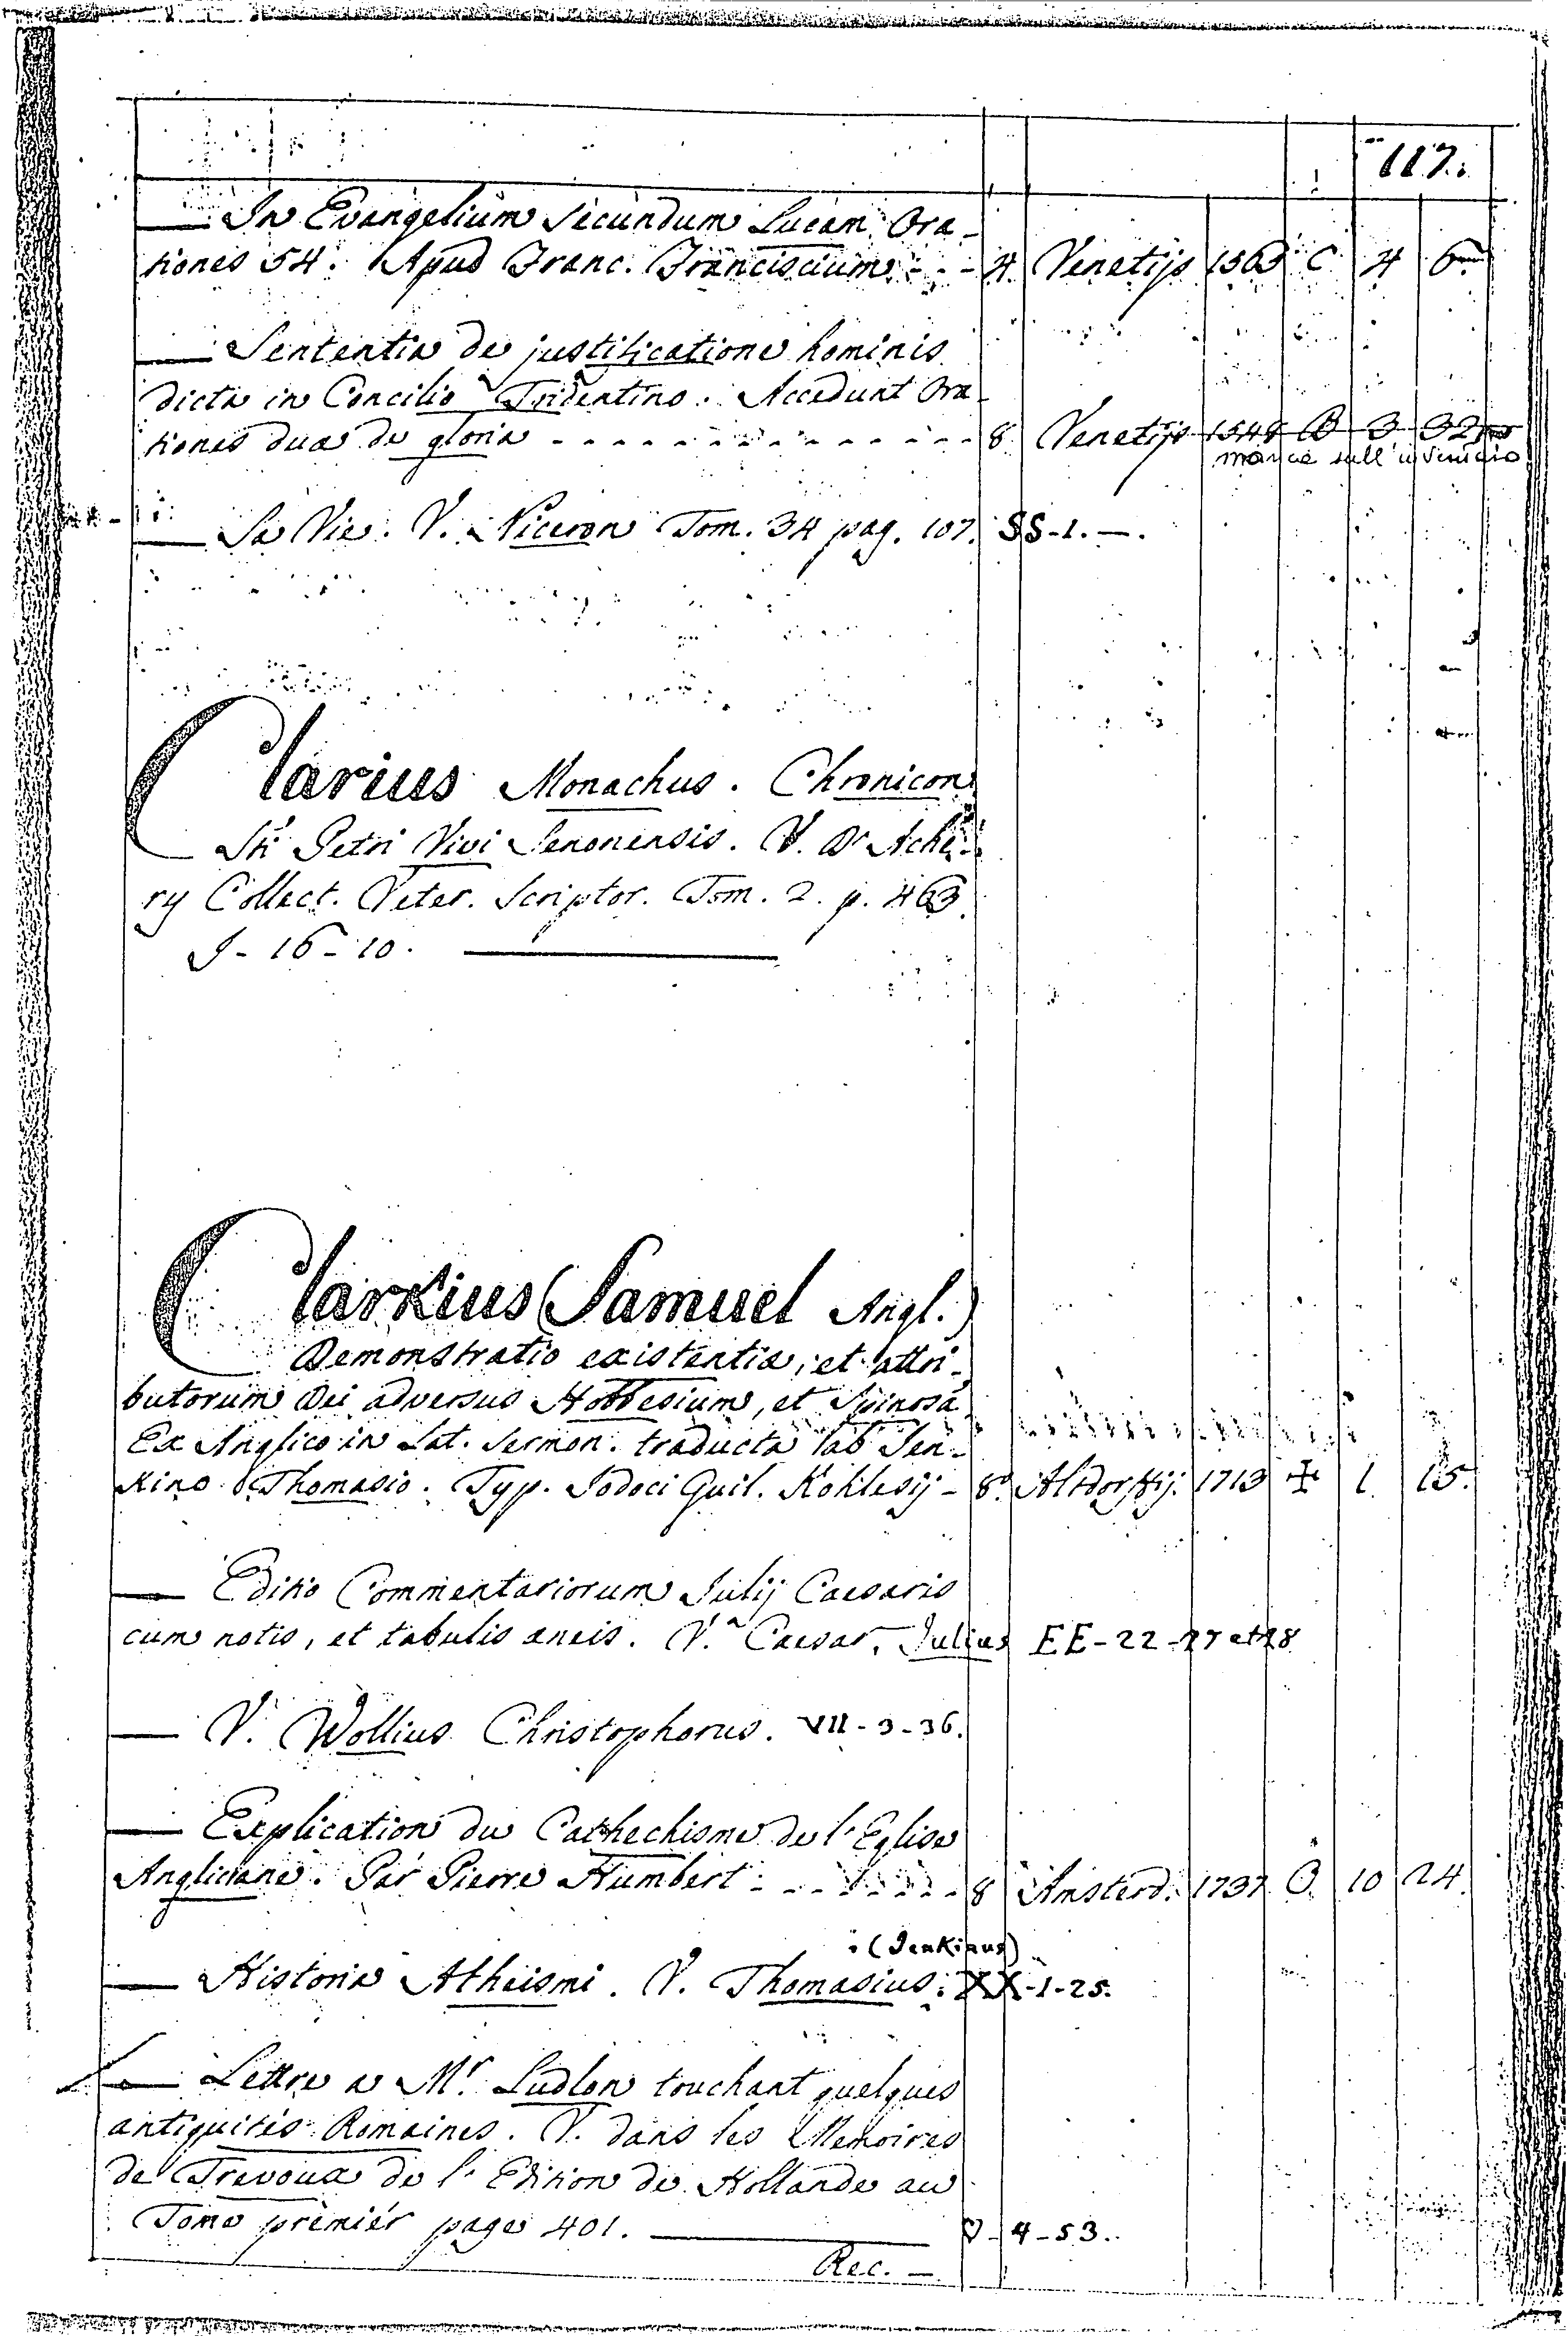 117.
— In Evangelium secundum Lucam. Ora-
tiones 54. Apud Franc. Franciscium - - - 4. Venetijs 1563 C 4 6
— Sententia de justificatione hominis
dicta in Concilio Tridentino. Accedunt Ora-
tiones duæ de gloria - - - - - - - - - - - - 8. Venetijs 1548 B 3 32
manca sull'inventario
— Sa Vie. V. Niceron Tom. 34 pag. 107. SS-1.—.
Clarius Monachus. Chronicon
Sti Petri Vivi Senonensis. V. D'Ache-
ry Collect. Veter. Scriptor. Tom. 2. p. 463.
J - 16 - 10.
Clarkius (Samuel Angl.)
Demonstratio existentiæ, et attri-
butorum Dei adversus Hobbesium, et Spinosa
Ex Anglico in Lat. sermon. traducta ab Jen-
kino Thomasio. Typ. Jodoci Guil. Kohlesij - 8. Altdorffij. 1713 ✠ 1 15.
— Editio Commentariorum Julij Caesaris
cum notis, et tabulis æneis. V. Caesar, Julius EE - 22 - 27 et 28
— V. Wollius Christophorus. VII - 3 - 36.
— Explication du Cathechisme de l'Eglise
Anglicane. Par Pierre Humbert - - - - - 8 Amsterd. 1737 O. 10 24.
(Jenkinus)
— Historia Atheismi. V. Thomasius. XX-1-25.
— Lettre a Mr. Ludlon touchant quelques
antiquités Romaines. V. dans les Memoires
de Trevoux de l'Edition de Hollande au
Tome prèmiér page 401. — ♡ - 4 - 53.
Rec. —